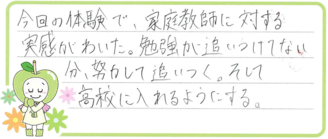 今回の体験で、家庭教師に対する
実感がわいた。勉強が追いつけてない
分、努力して追いつく。そして
高校に入れるようにする。